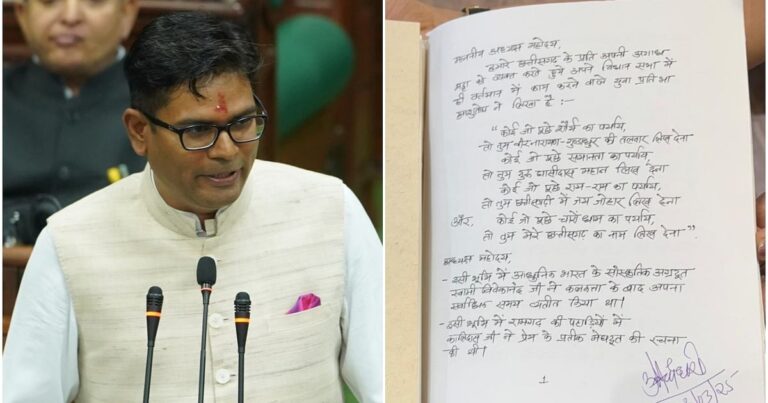 माननीय अध्यक्ष महोदय,
हमारे छत्तीसगढ़ के प्रति अपनी अगाध
श्रद्धा को व्यक्त करते हुये अपने विधान सभा में
ही वर्तमान में काम करने वाले युवा प्रतिभा
ने लिखा है :-
"कोई जो पूछे शौर्य का पर्याय,
तो तुम वीरनारायण-गुण्डाधुर की तलवार लिख देना
कोई जो पूछे समानता का पर्याय,
तो तुम गुरु घासीदास महान लिख देना
कोई जो पूछे राम-राम का पर्याय,
तो तुम छत्तीसगढ़ी में जय जोहार लिख देना
और, कोई जो पूछे चारों धाम का पर्याय,
तो तुम मेरे छत्तीसगढ़ का नाम लिख देना"।
अध्यक्ष महोदय,
- इसी भूमि में आधुनिक भारत के सांस्कृतिक अग्रदूत
स्वामी विवेकानंद जी ने कलकत्ता के बाद अपना
सर्वाधिक समय व्यतीत किया था।
- इसी भूमि में रामगढ़ की पहाड़ियों में
कालिदास जी ने प्रेम के प्रतीक मेघदूत की रचना
की थी।
1
/03/25